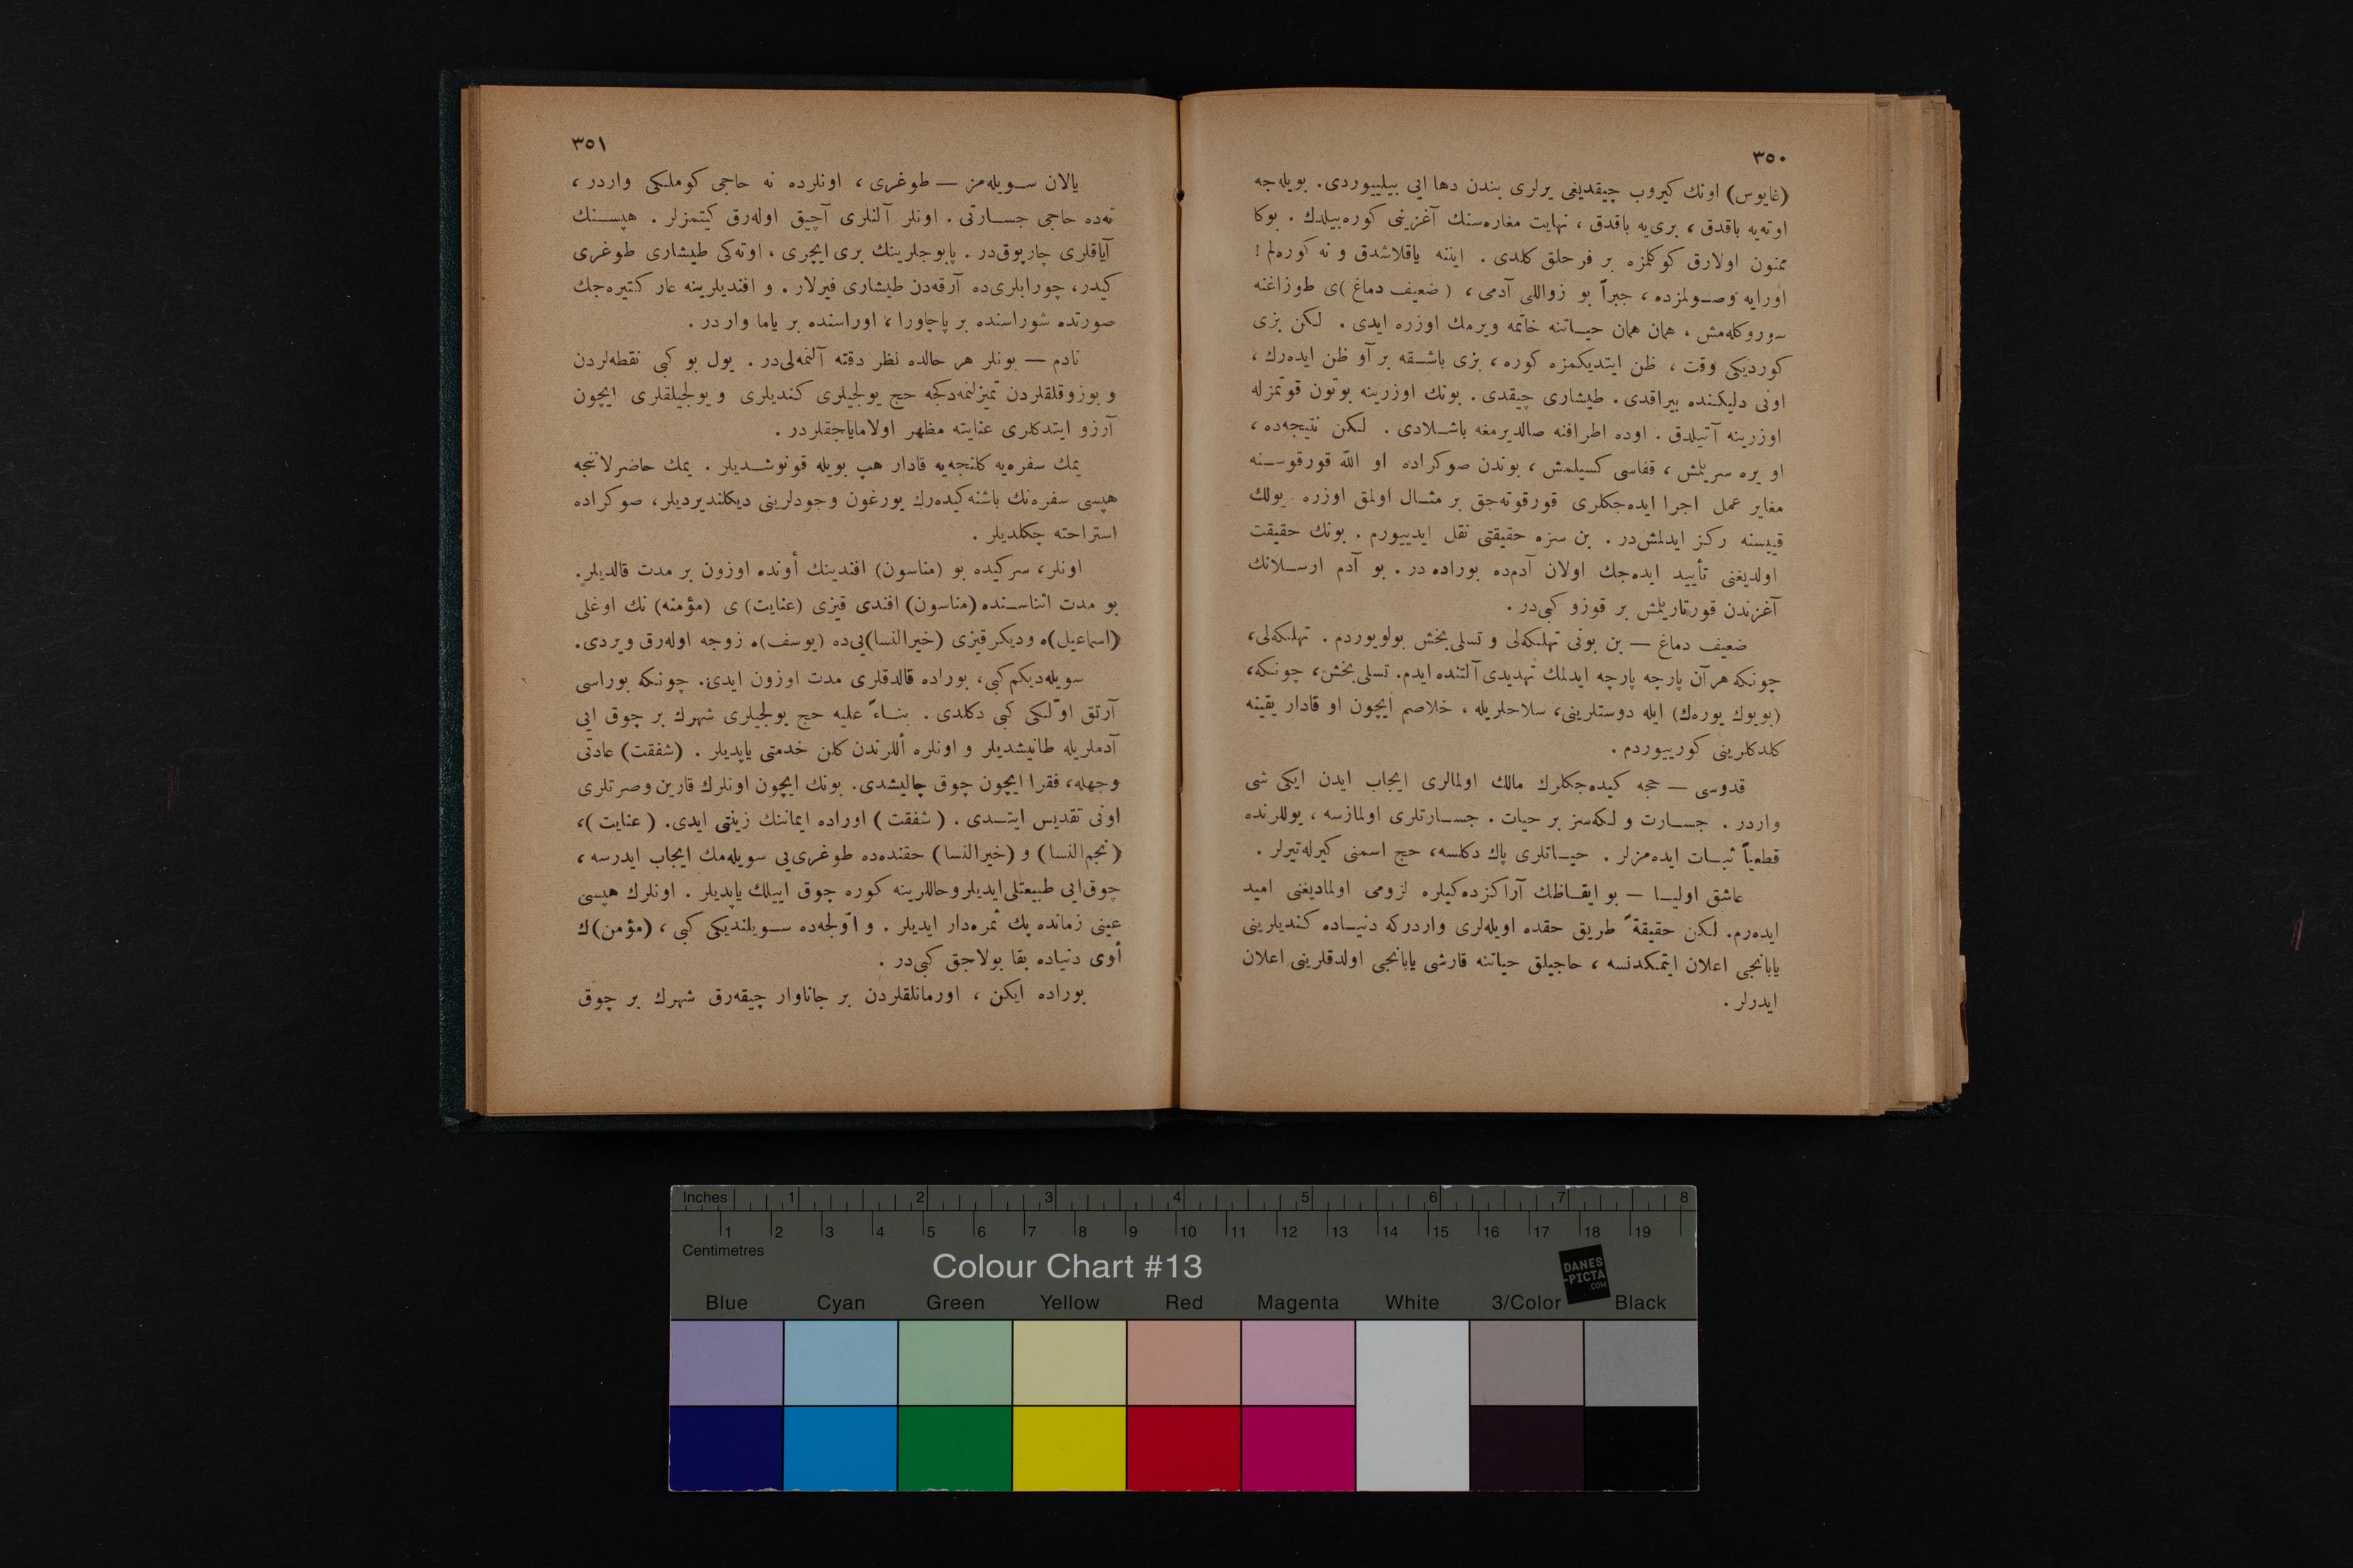 ٣٥٠
(غایوس) اونك كیروب چیقدیغی یرلری بندن دها ایی بیلییوردی. بویله‌جه
اوته‌یه باقدق، بری‌یه باقدق، نهایت مغاره‌سنك آغزینی كوره‌بیلدك. بوكا
ممنون اولارق كوكلمزه بر فرحلق كلدی. ایننه یاقلاشدق و نه كوره‌لم!
اورایه وصولمزده، جبراً بو زواللی آدمی، (ضعیف دماغ)ی طوزاغنه
سوروكله‌مش، همان همان حیاتنه خاتمه ویرمك اوزره ایدی. لكن بزی
كوردیكی وقت، ظن ایتدیكمزه كوره، بزی باشقه بر آو ظن ایده‌رك،
اونی دلیكنده بیراقدی. طیشاری چیقدی. بونك اوزرینه بوتون قوتمزله
اوزرینه آتیلدق. اوده اطرافنه صالدیرمغه باشلادی. لكن نتیجه‌ده،
او یره سریلمش، قفاسی كسیلمش، بوندن صوكراده او اللّه قورقوسنه
مغایر عمل اجرا ایده‌جكلری قورقوته‌جق بر مثال اولمق اوزره یولك
قییسنه ركز ایدلمش‌در. بن سزه حقیقتی نقل ایدییورم. بونك حقیقت
اولدیغنی تأیید ایده‌جك اولان آدم‌ده بوراده‌در. بو آدم ارسلانك
آغزندن قورتاریلمش بر قوزو كبی‌در.
ضعیف دماغ — بن بونی تهلكه‌لی و تسلی‌بخش بولویوردم. تهلكه‌لی،
چونكه هر آن پارچه پارچه ایدلمك تهدیدی آلتنده ایدم. تسلی‌بخش، چونكه،
(بویوك یوره‌ك) ایله دوستلرینی، سلاحلریله، خلاصم ایچون او قادار یقینه
كلدكلرینی كورییوردم.
قدوسی — حجه كیده‌جكلرك مالك اولمالری ایجاب ایدن ایكی شی
واردر. جسارت و لكه‌سز بر حیات. جسارتلری اولمازسه، یوللرنده
قطعیاً ثبات ایده‌مزلر. حیاتلری پاك دكلسه، حج اسمنی كیرله‌تیرلر.
عاشق اولیا — بو ایقاظك آراكزده‌كیلره لزومی اولمادیغنی امید
ایده‌رم. لكن حقیقةً طریق حقده اویله‌لری واردركه دنیاده كندیلرینی
یابانجی اعلان ایتمكدنسه، حاجیلق حیاتنه قارشی یابانجی اولدقلرینی اعلان
ایدرلر.
٣٥١
یالان سویله‌مز — طوغری، اونلرده نه حاجی كوملكی واردر،
نه‌ده حاجی جسارتی. اونلر آلنلری آچیق اوله‌رق كیتمزلر. هپسنك
آیاقلری چارپوق‌در. پابوجلرینك بری ایچری، اوته‌كی طیشاری طوغری
كیدر، چورابلری‌ده آرقه‌دن طیشاری فیرلار. و افندیلرینه عار كتیره‌جك
صورتده شوراسنده بر پاچاورا، اوراسنده بر یاما واردر.
نادم — بونلر هر حالده نظر دقته آلنمه‌لی‌در. یول بو كبی نقطه‌لردن
و بوزوقلقلردن تمیزلنمه‌دكجه حج یولجیلری كندیلری و یولجیلقلری ایچون
آرزو ایتدكلری عنایته مظهر اولامایاجقلردر.
یمك سفره‌یه كلنجه‌یه قادار هپ بویله قونوشدیلر. یمك حاضرلاننجه
هپسی سفره‌نك باشنه كیده‌رك یورغون وجودلرینی دیكلندیردیلر، صوكراده
استراحته چكلدیلر.
اونلر، سركیده بو (مناسون) افندینك أونده اوزون بر مدت قالدیلر.
بو مدت اثناسنده (مناسون) افندی قیزی (عنایت)ی (مؤمنه)نك اوغلی
(اسماعیل)ه ودیكر قیزی (خیرالنسا)یی‌ده (یوسف)ه زوجه اوله‌رق ویردی.
سویله‌دیكم كبی، بوراده قالدقلری مدت اوزون ایدی. چونكه بوراسی
آرتق اوّلكی كبی دكلدی. بناءً علیه حج یولجیلری شهرك بر چوق ایی
آدملریله طانیشدیلر و اونلره أللرندن كلن خدمتی یاپدیلر. (شفقت) عادتی
وجهله، فقرا ایچون چوق چالیشدی. بونك ایچون اونلرك قارین وصرتلری
اونی تقدیس ایتدی. (شفقت) اوراده ایماننك زینتی ایدی. (عنایت)،
(نجم‌النسا) و (خیرالنسا) حقنده‌ده طوغری‌یی سویله‌مك ایجاب ایدرسه،
چوق‌ایی طبیعتلی‌ایدیلر وحاللرینه كوره چوق اییلك یاپدیلر. اونلرك هپسی
عینی زمانده پك ثمره‌دار ایدیلر. و اوّلجه‌ده سویلندیكی كبی، (مؤمن)ك
أوی دنیاده بقا بولاجق كبی‌در.
بوراده ایكن، اورمانلقلردن بر جاناوار چیقه‌رق شهرك بر چوق
Inches 1 2 3 4 5 6 7 8
1 2 3 4 5 6 7 8 9 10 11 12 13 14 15 16 17 18 19
Centimetres
Colour Chart #13
DANES
-PICTA
.COM
Blue Cyan Green Yellow Red Magenta White 3/Color Black